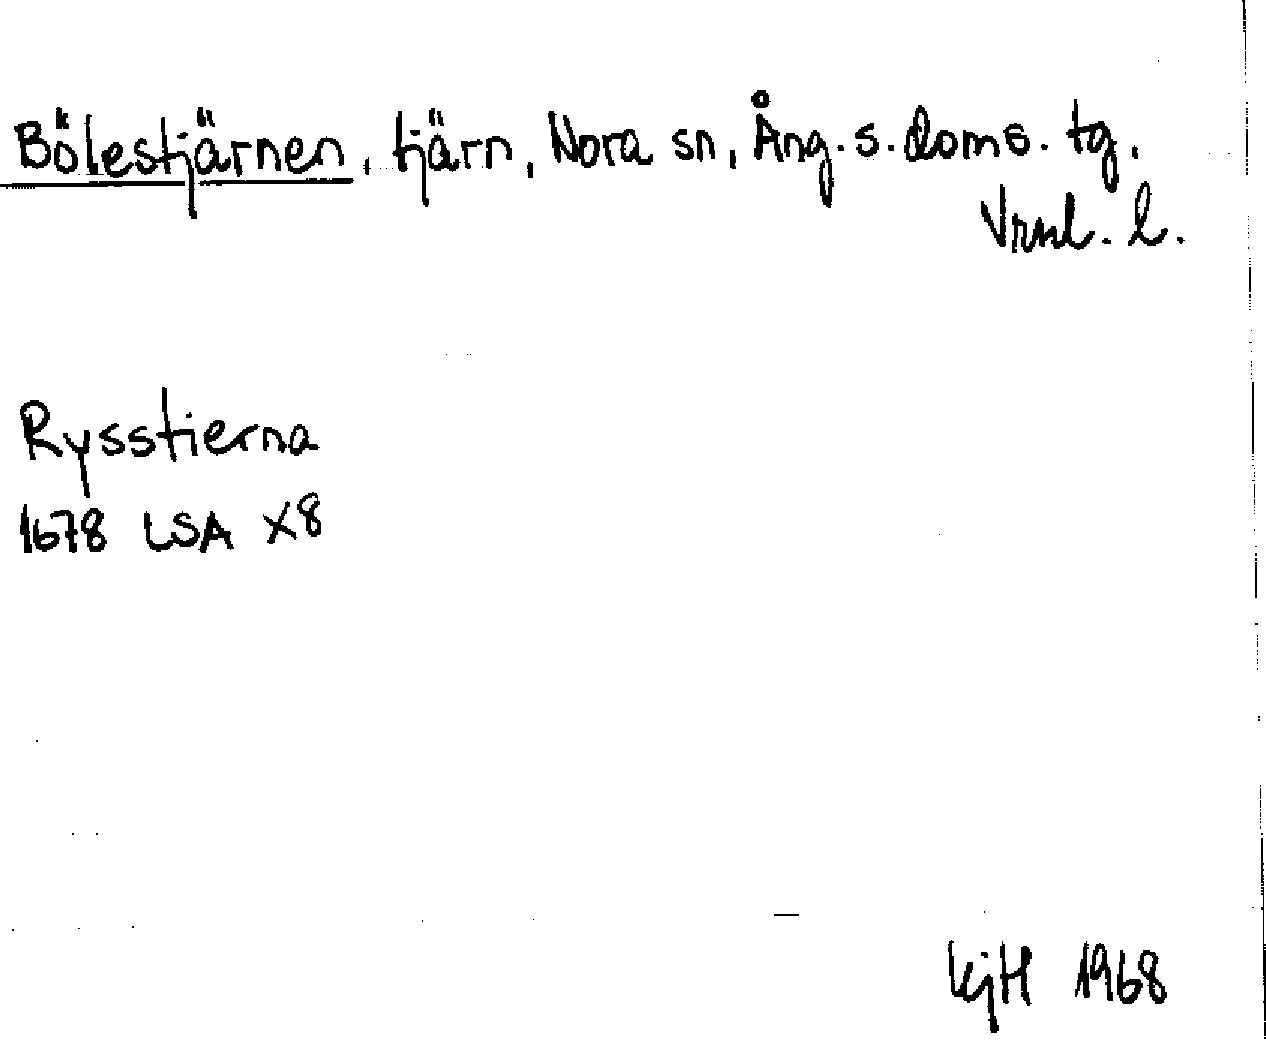 Bölestjärnen, tjärn, Nora sn, Ång. s. doms. tg.
Vrnl. l.
Rysstierna
1678 LSA X8
KjH 1968